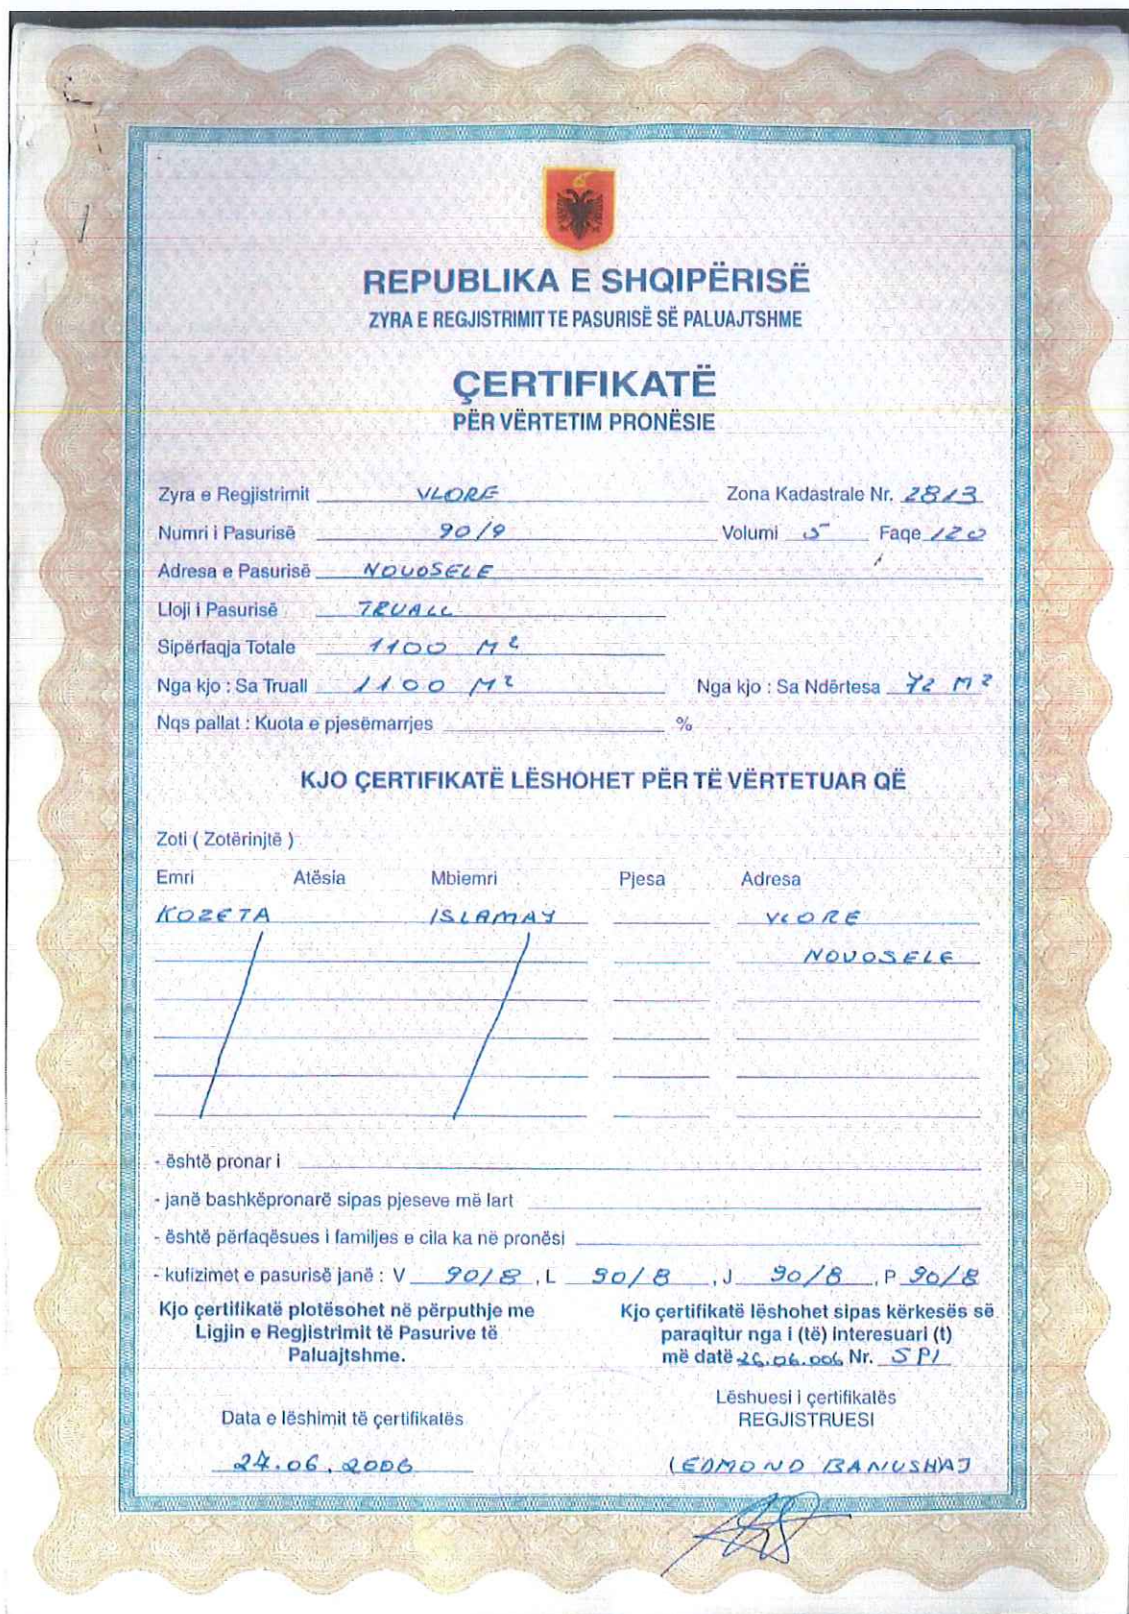 REPUBLIKA E SHQIPËRISË
ZYRA E REGJISTRIMIT TE PASURISË SË PALUAJTSHME
ÇERTIFIKATË
PËR VËRTETIM PRONËSIE
Zyra e Regjistrimit VLORE Zona Kadastrale Nr. 2813
Numri i Pasurisë 90/9 Volumi 5 Faqe 120
Adresa e Pasurisë NOVOSELE
Lloji i Pasurisë TRUALL
Sipërfaqja Totale 1100 M²
Nga kjo : Sa Truall 1100 M² Nga kjo : Sa Ndërtesa 72 M²
Nqs pallat : Kuota e pjesëmarrjes %
KJO ÇERTIFIKATË LËSHOHET PËR TË VËRTETUAR QË
Zoti ( Zotërinjtë )
Emri Atësia Mbiemri Pjesa Adresa
KOZETA ISLAMAJ VLORE
NOVOSELE
- është pronar i
- janë bashkëpronarë sipas pjeseve më lart
- është përfaqësues i familjes e cila ka në pronësi
- kufizimet e pasurisë janë : V 90/8 , L 90/8 , J 90/8 , P 90/8
Kjo çertifikatë plotësohet në përputhje me Kjo çertifikatë lëshohet sipas kërkesës së
Ligjin e Regjistrimit të Pasurive të paraqitur nga i (të) interesuari (t)
Paluajtshme. më datë 26.06.006 Nr. SPI
Lëshuesi i çertifikatës
Data e lëshimit të çertifikatës REGJISTRUESI
.06.2006 (EDMOND BANUSHAJ